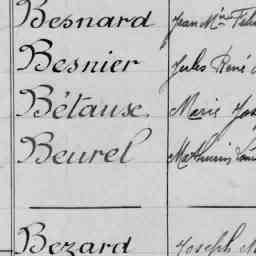 Besnard Jean Min
Besnier Jules René
Bétause Marie
Beurel Mathurin
Bezard Joseph